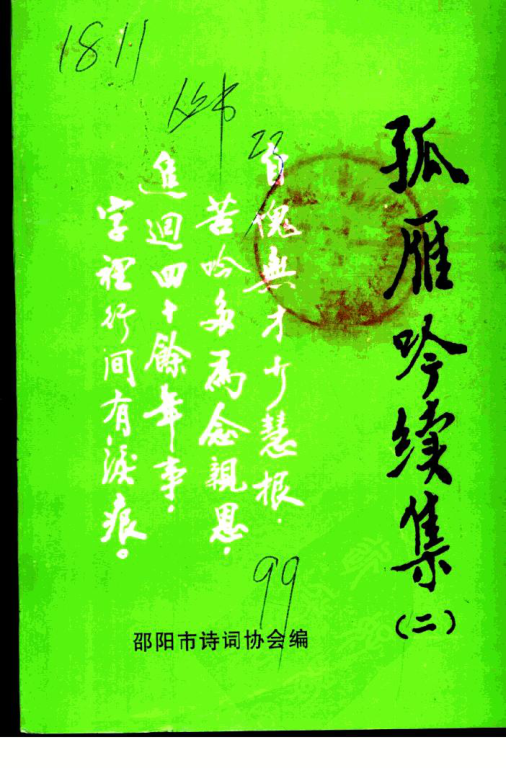 1811
孤雁吟续集
(二)
自愧無才少慧根.
苦吟多為念親恩.
迴四十餘年事.
字裡行間有淚痕。
99
邵阳市诗词协会编